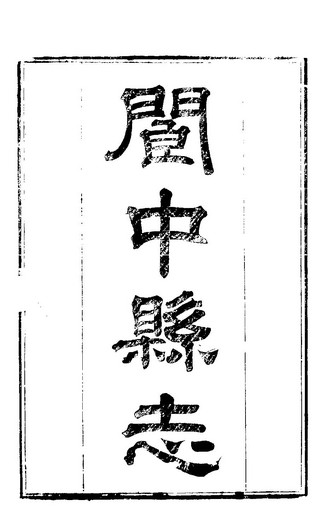 閬中縣志